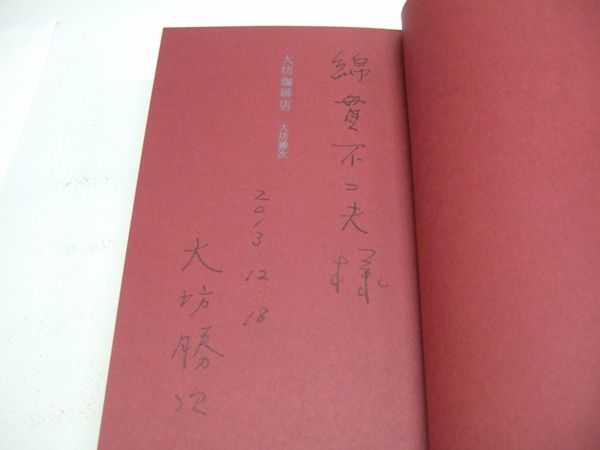 綿貫不二夫様
大坊珈琲店 大坊勝次
2013 12 18
大坊勝次